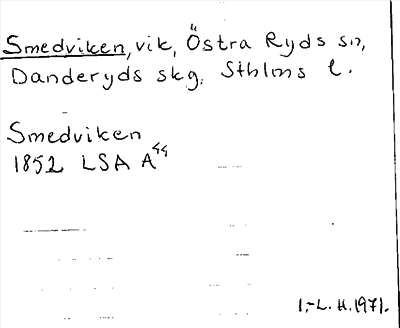 Smedviken, vik, Östra Ryds sn,
Danderyds skg. Sthlms l.
Smedviken
1852 LSA A⁴⁴
I.-L. H. 1971.